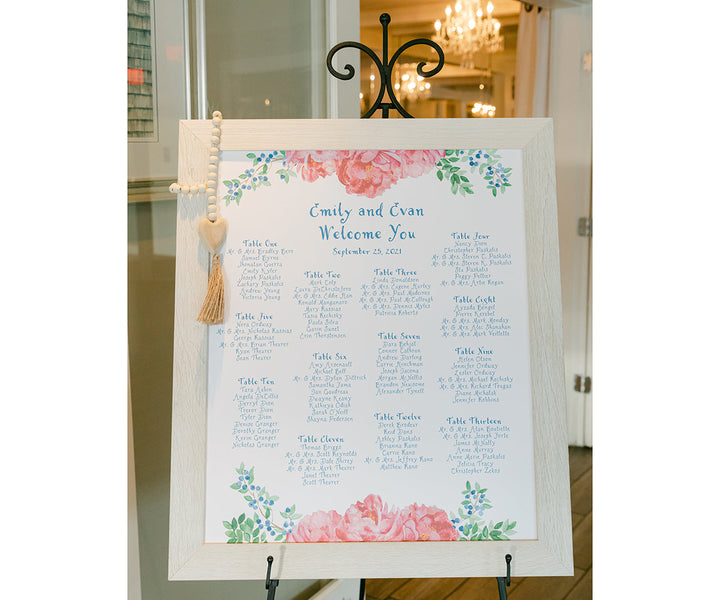 Emily and Evan
Welcome You
September 25, 2021
Table One
Mr. & Mrs. Bradley Bern
Samuel Byrns
Jhonatan Guerra
Emily Kyfer
Joseph Paskalis
Zackary Paskalis
Andrew Young
Victoria Young
Table Two
Mark Coty
Laura DeChristofero
Mr. & Mrs. Eddie Nan
Ronald Manganaro
Mary Rasmas
Tania Rechisky
Paula Silva
Carin Sweet
Erin Tuttle
Table Three
Linda Donaldson
Mr. & Mrs. Eugene Hurley
Mr. & Mrs. Paul Maderios
Mr. & Mrs. Paul McCullough
Mr. & Mrs. Dennis Myles
Patricia Roberts
Table Four
Nancy Dion
Christopher Paskalis
Mr. & Mrs. Steven C. Paskalis
Mr. & Mrs. Steven K. Paskalis
Stu Paskalis
Peggy Peltier
Mr. & Mrs. Arne Rogan
Table Five
Nora Ordway
Mr. & Mrs. Nicholas Rasmas
George Rasmas
Mr. & Mrs. Brian Theurer
Ryan Theurer
Sean Theurer
Table Six
Amy Arsenault
Michael Bell
Mr. & Mrs. Dylan Dittrich
Samantha Jama
Ian Goudreau
Dwayne Keany
Kathleya Oduh
Sarah O'Neil
Shayna Pedersen
Table Seven
Dara Behjat
Connor Calhoun
Andrew Darling
Carrie Knickman
Joseph Lacona
Morgan McNellis
Brandon Newsome
Alexander Tynell
Table Eight
Ayzada Bengel
Pierre Kerebel
Mr. & Mrs. Mark Monday
Mr. & Mrs. Alec Shanahan
Mr. & Mrs. Mark Veitstesen
Table Nine
Helen Olson
Jennifer Ordway
Lester Ordway
Mr. & Mrs. Michael Rechisky
Mr. & Mrs. Richard Teague
Diane Michalak
Jennifer Robbins
Table Ten
Tara Aslen
Angela DeLillis
Darryl Dion
Trevor Dion
Tyler Dion
Denise Granger
Dorothy Granger
Kevin Granger
Nicholas Granger
Table Eleven
Thomas Briggs
Mr. & Mrs. Scott Reynolds
Mr. & Mrs. Dale Shirey
Mr. & Mrs. Mark Theurer
Janet Theurer
Scott Theurer
Table Twelve
Derek Brodeur
Reid Dans
Ashley Paskalis
Brianna Kane
Carrie Kane
Mr. & Mrs. Jeffrey Kane
Matthew Kane
Table Thirteen
Mr. & Mrs. Alan Boutiette
Mr. & Mrs. Joseph Forte
James McNally
Anne Murray
Anne Marie Paskalis
Felicia Tracy
Christopher Zekos